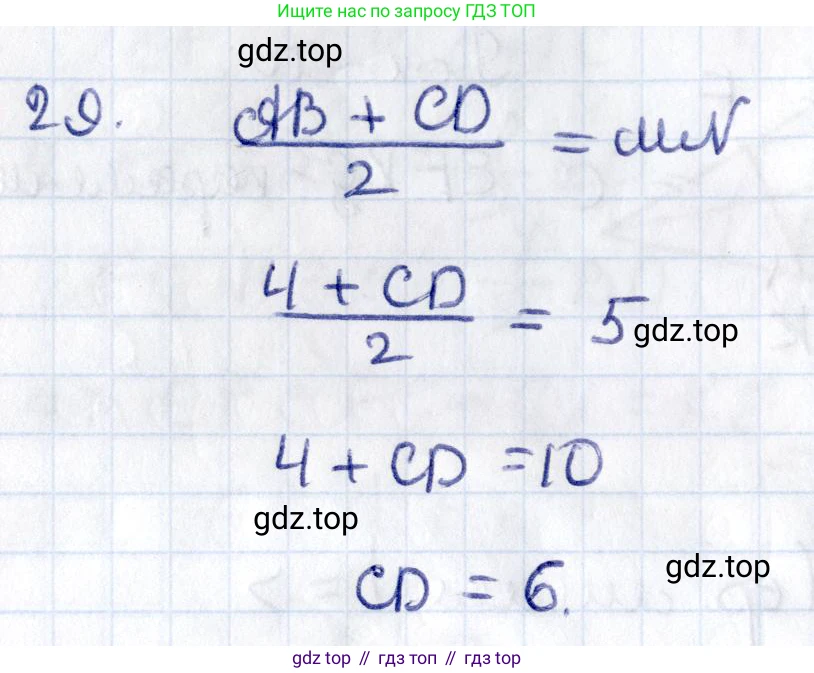 Ищите нас по запросу ГДЗ ТОП
gdz.top
29. (AB + CD)/2 = MN
(4 + CD)/2 = 5
gdz.top
4 + CD = 10
gdz.top
CD = 6.
gdz.top
gdz top // гдз топ // gdz top